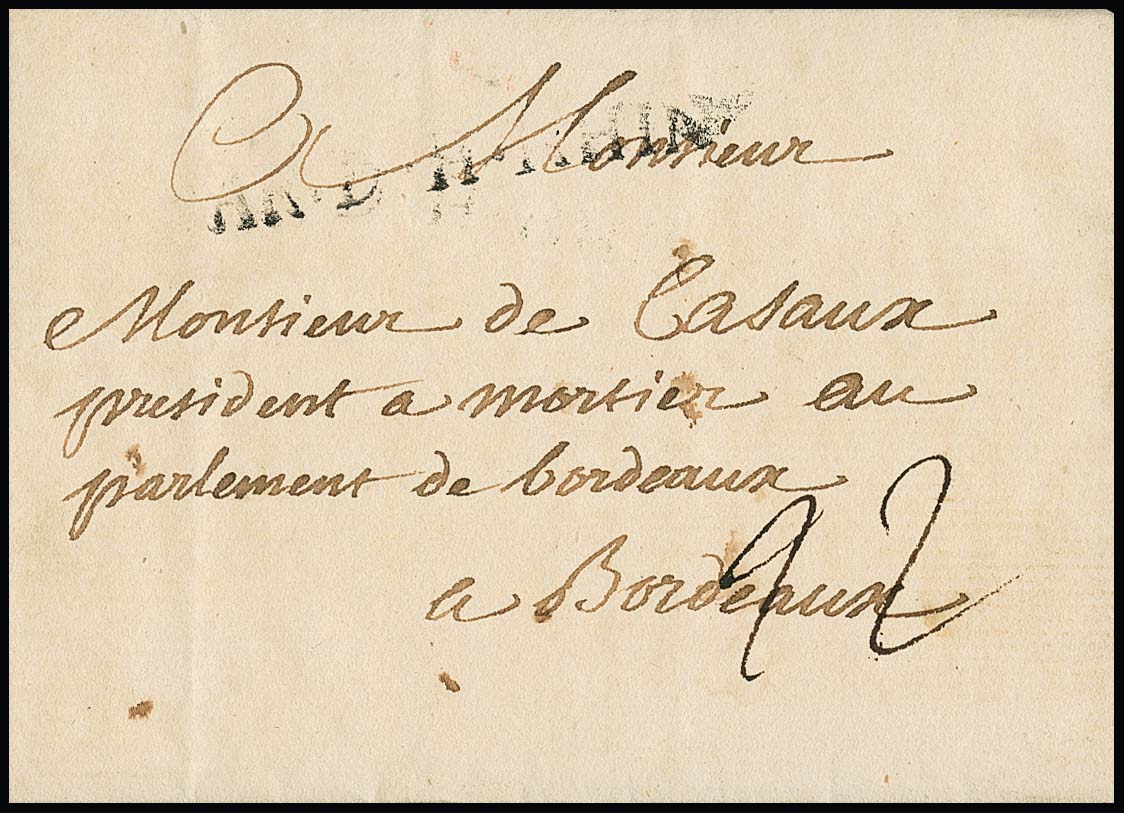 A Monsieur
AR·D·H·RHIN
Monsieur de Casaux
president a mortier au
parlement de bordeaux
a Bordeaux